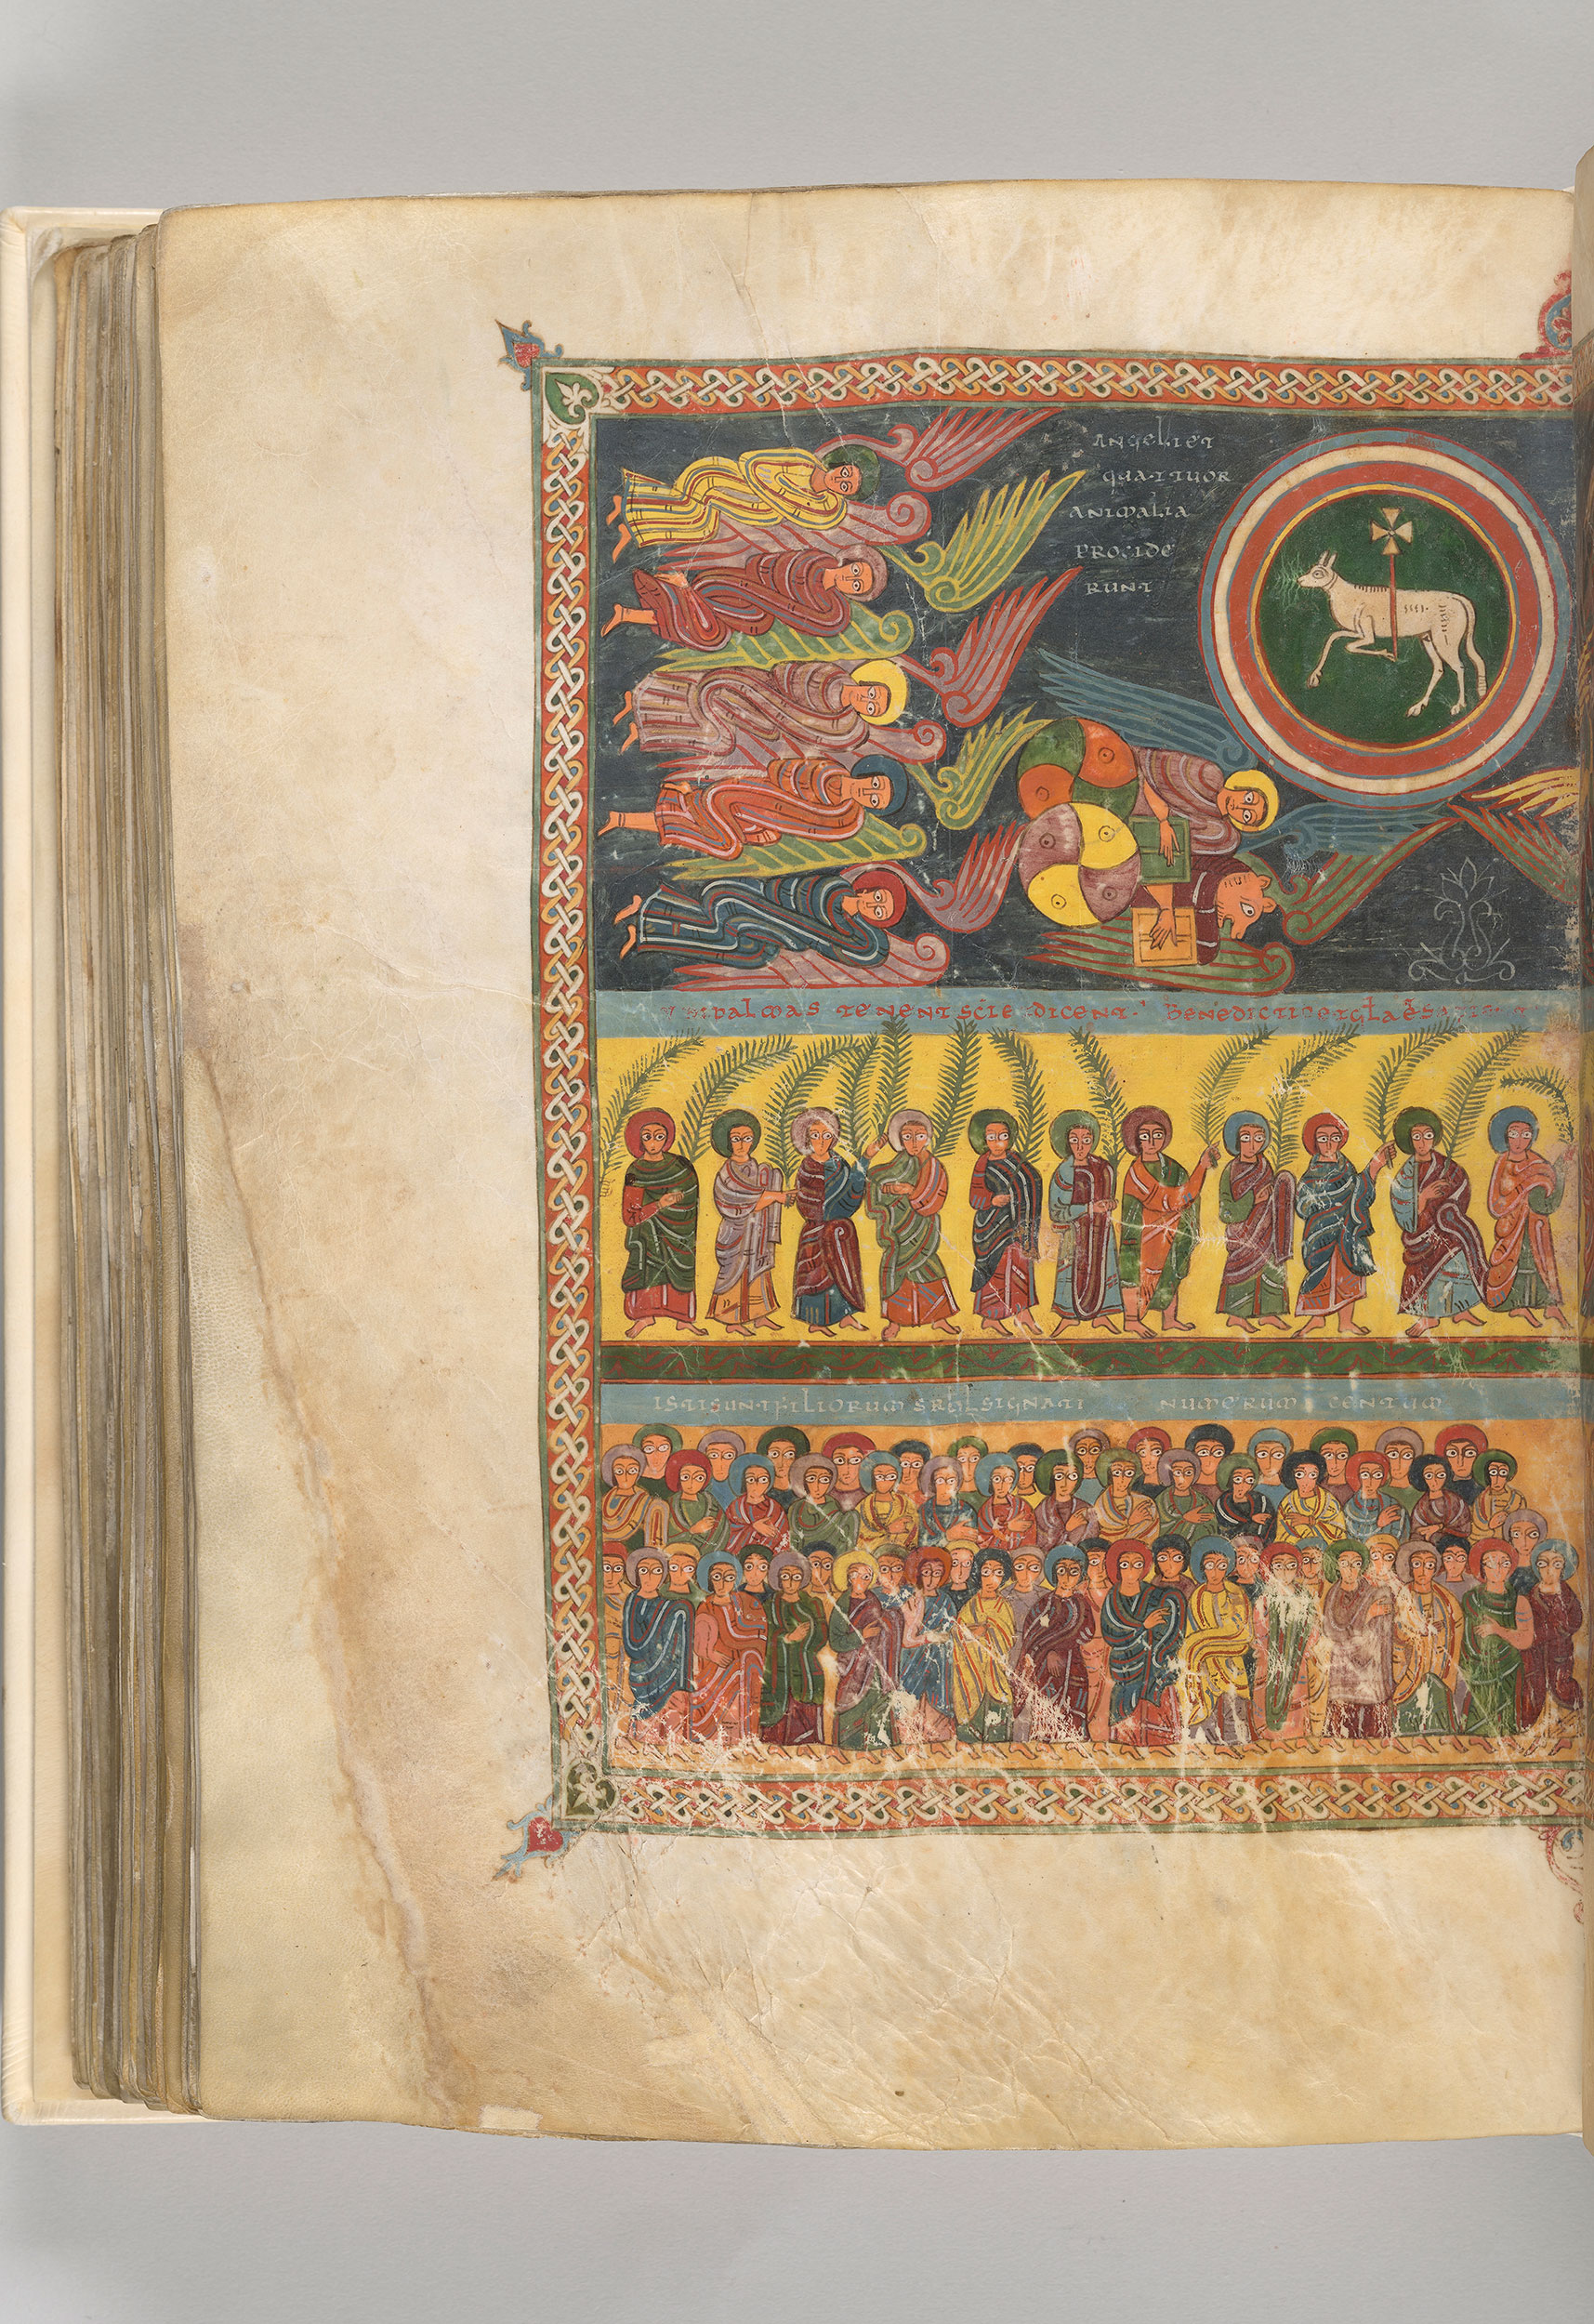 ANGELI ET
QUATTUOR
ANIMALIA
PROCIDE
RUNT
PALMAS TENENT SCIE DICENT. BENEDICTIO ET GLA
ISTI SUNT FILIORUM SRHL SIGNATI NUMERUM CENTUM